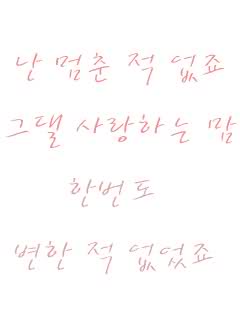 난 멈춘 적 없죠
그댈 사랑하는 맘
한번도
변한 적 없었죠